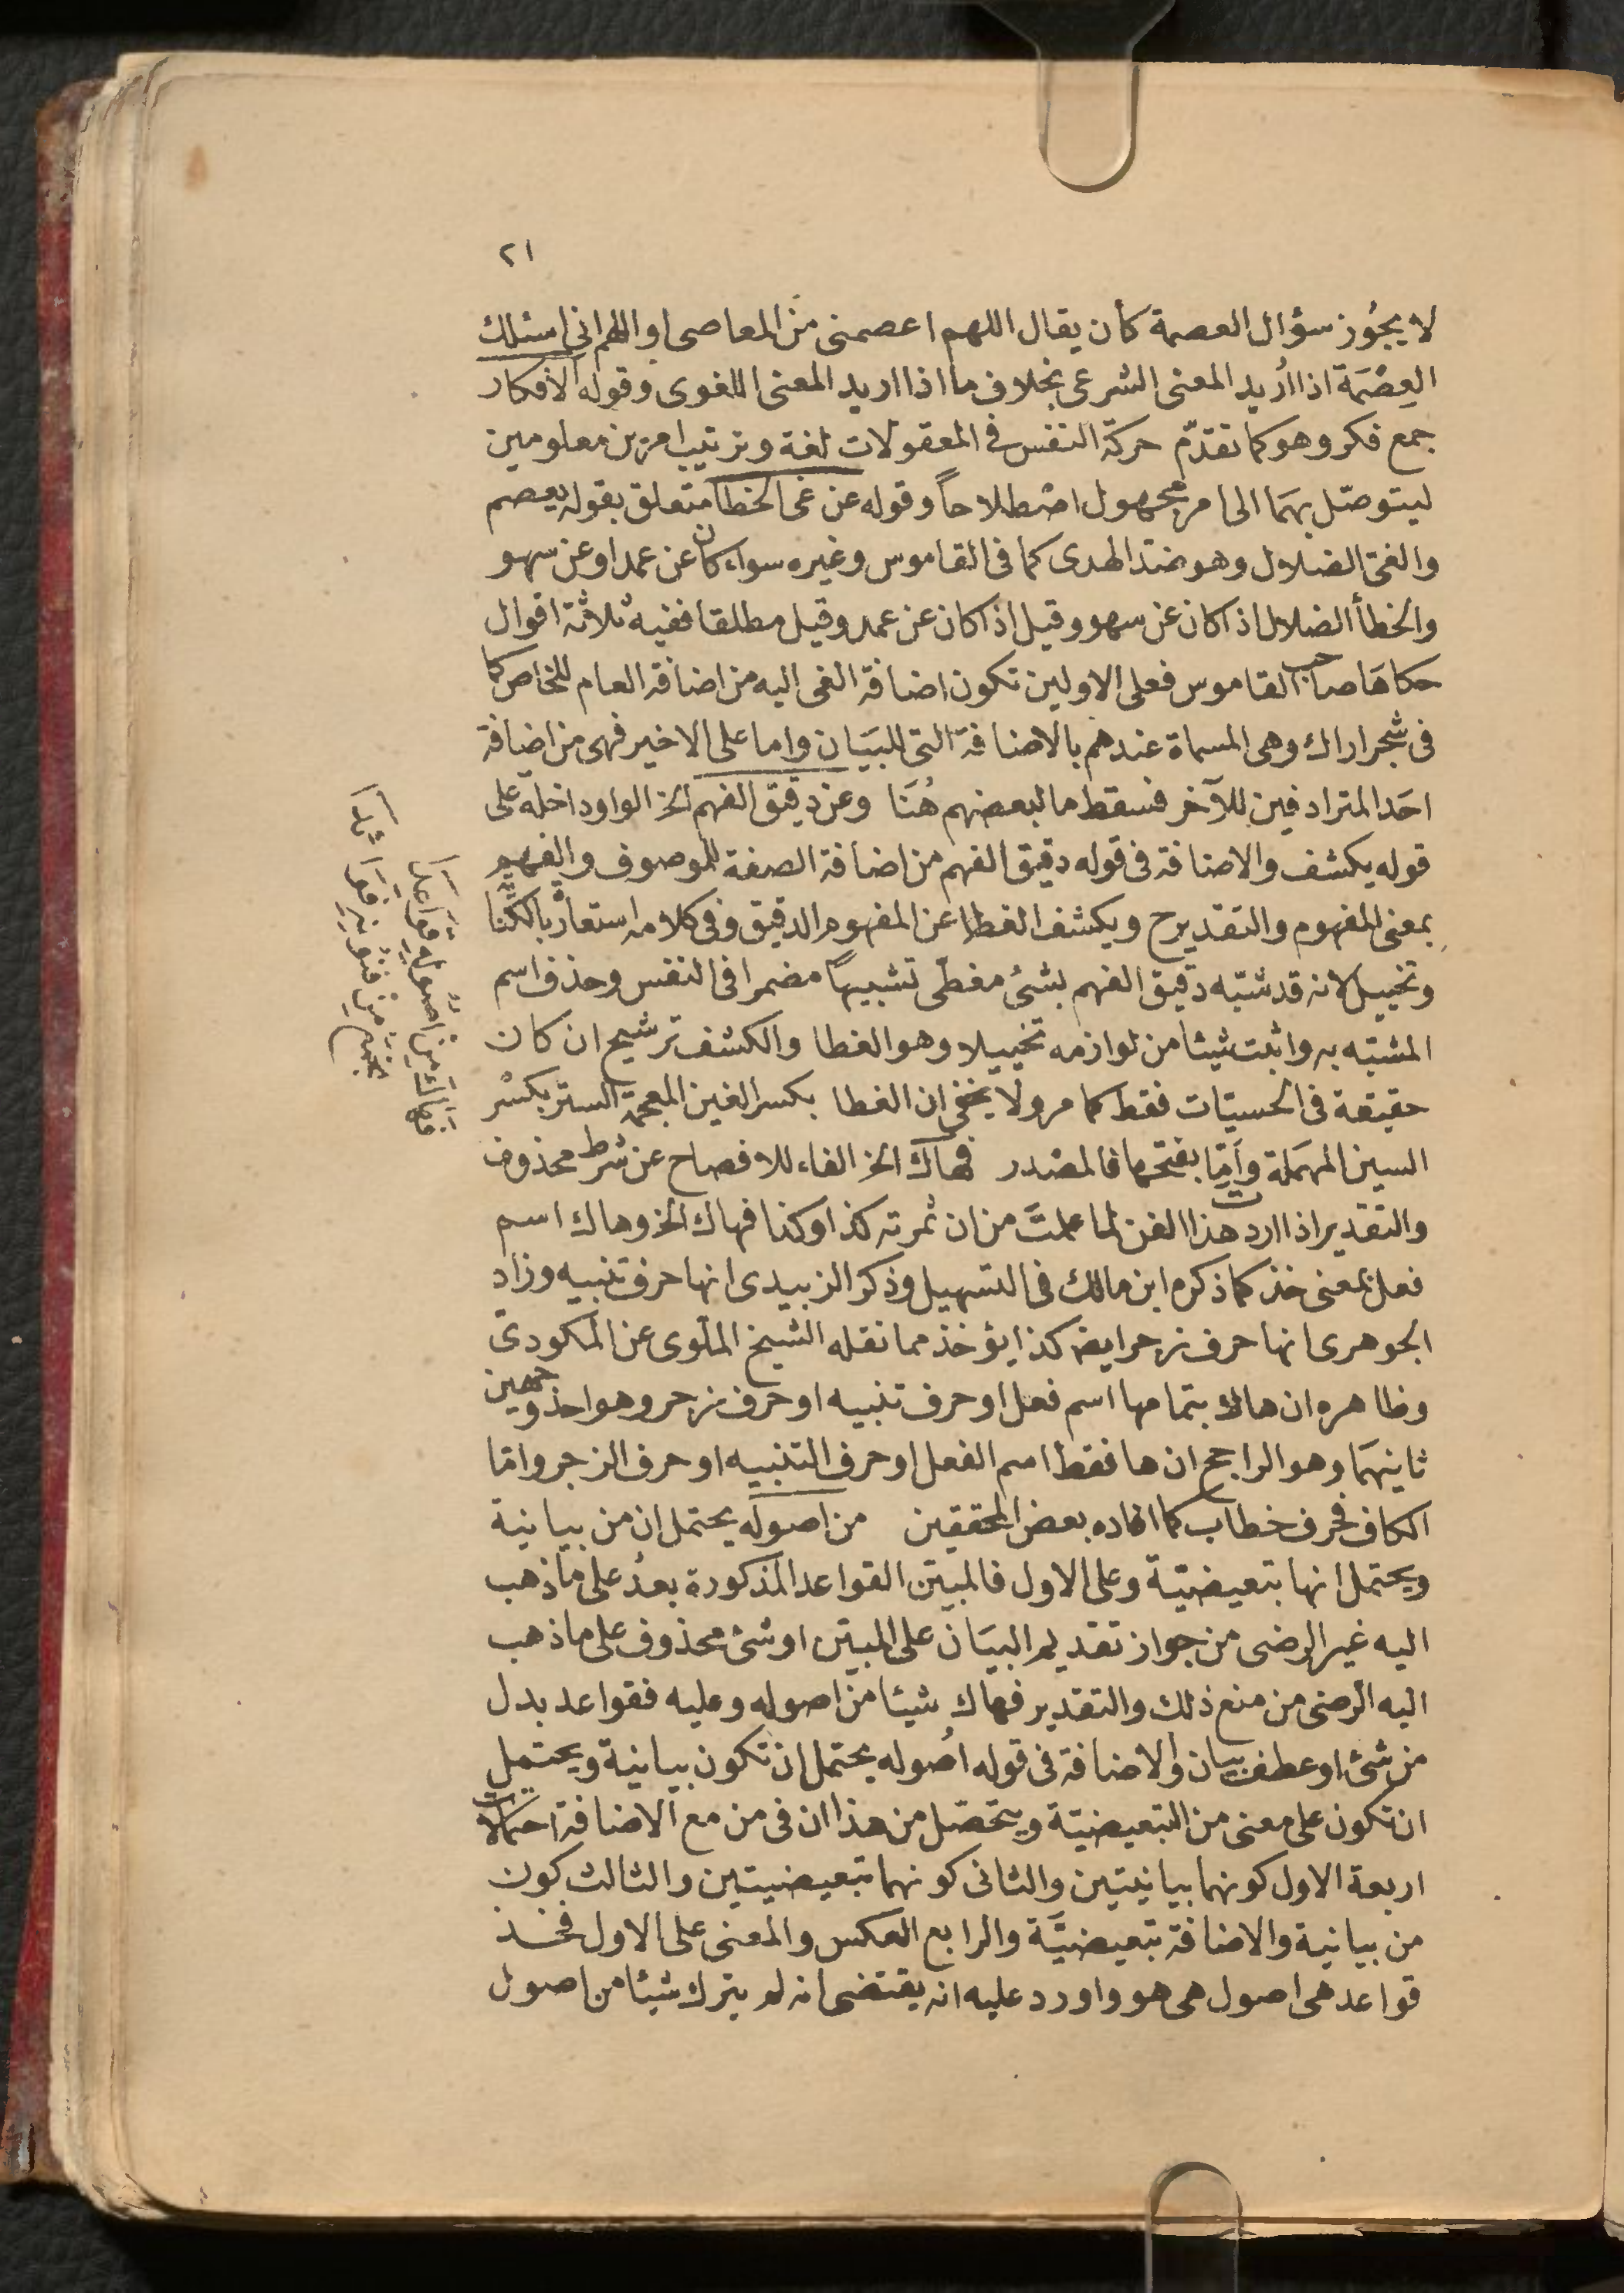 ٢١
لا يجوز سؤال العصمة كأن يقال اللهم اعصمنى من المعاصى او اللهم انى اسئلك
العصمة اذا اريد المعنى الشرعى بخلاف ما اذا اريد المعنى اللغوى وقوله الافكار
جمع فكر وهو كما تقدّم حركة النفس فى المعقولات لغة وترتيب امرين معلومين
ليتوصّل بهما الى امر مجهول اصطلاحاً وقوله عن غى الخطا متعلق بقوله يعصم
والغى الضلال وهو ضد الهدى كما فى القاموس وغيره سواء كان عن عمد او عن سهو
والخطأ الضلال اذا كان عن سهو وقيل اذا كان عن عمد وقيل مطلقا ففيه ثلاثة اقوال
حكاها صاحب القاموس فعلى الاولين تكون اضافة الغى اليه من اضافة العام للخاص كما
فى شجر اراك وهى المسماة عندهم بالاضافة التى للبيان واما على الاخير فهى من اضافة
احد المترادفين للآخر فسقط ما لبعضهم هُنا وعن دقيق الفهم الخ الواو داخلة على
قوله يكشف والاضافة فى قوله دقيق الفهم من اضافة الصفة للموصوف والفهم
بمعنى المفهوم والتقدير ح ويكشف الغطا عن المفهوم الدقيق وفى كلامه استعارة بالكناية
وتخييل لانه قد شبّه دقيق الفهم بشئ مغطّى تشبيهاً مضمرا فى النفس وحذف اسم
المشبّه به واثبت شيئا من لوازمه تخييلا وهو الغطا والكشف ترشيح ان كان
حقيقة فى الحسيّات فقط كما مر ولا يخفى ان الغطا بكسر الغين المعجمة الستر بكسْر
السين المهملة وأمّا بفتحها فالمصْدر فهاك الخ الفاء للافصاح عن شرط محذوف
والتقدير اذا اردت هذا الفن لما علمتَ من ان ثمرته كذا وكذا فهاك الخ وهاك اسم
فعل بمعنى خذ كما ذكره ابن مالك فى التسهيل وذكر الزبيدى انها حرف تنبيه وزاد
الجوهرى انها حرف زجر ايض كذا يؤخذ مما نقله الشيخ الملّوى عن المكودىّ
وظاهره ان هاك بتمامها اسم فعل او حرف تنبيه او حرف زجر وهو احد وجهين
ثانيهما وهو الراجح ان ها فقط اسم الفعل او حرف التنبيه او حرف الزجر وامّا
الكاف فحرف خطاب كما افاده بعض المحققين من اصوله يحتمل ان من بيانية
ويحتمل انها تبعيضيّة وعلى الاول فالمبيّن القواعد المذكورة بعدُ على ما ذهب
اليه غير الرضى من جواز تقديم البيَان على المبيّن او شئ محذوف على ما ذهب
اليه الرضى من منع ذلك والتقدير فهاك شيئا من اصوله وعليه فقواعد بدل
من شئ او عطف بيان والاضافة فى قوله اصُوله يحتمل ان تكون بيانية ويحتمل
ان تكون على معنى من التبعيضيّة ويتحصّل من هذا ان فى من مع الاضافة احتمالات
اربعة الاول كونهما بيانيتين والثانى كونهما تبعيضيتين والثالث كون
من بيانية والاضافة تبعيضيَّة والرابع العكس والمعنى على الاول فخذ
قواعد هى اصول هى هو واورد عليه انه يقتضى انه لم يترك شيئا من اصول
فهاكَ مِن اصُولهِ قَواعدَا
تجمعُ مِن فنُونهِ فَوائدَا